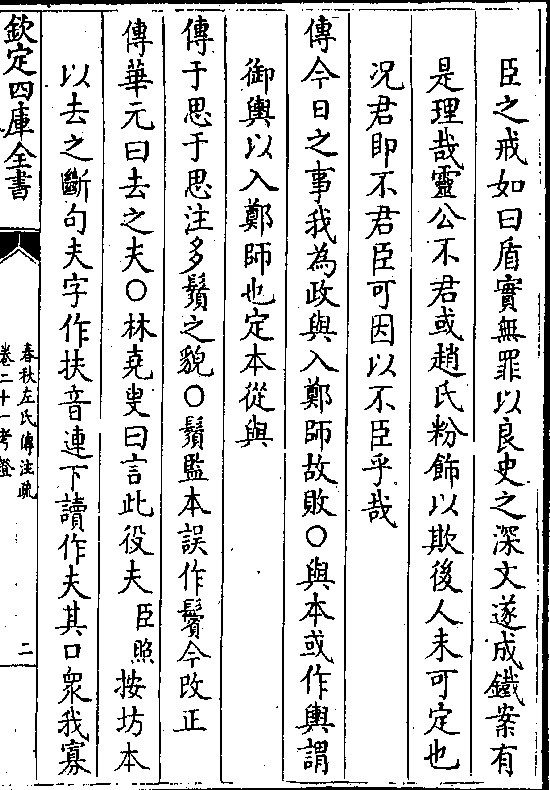 臣之戒如曰盾實無罪以良史之深文遂成鐵案有
是理哉靈公不君或趙氏粉飾以欺後人未可定也
況君即不君臣可因以不臣乎哉
傳今日之事我為政與入鄭師故敗○與本或作輿謂
御輿以入鄭師也定本從與
傳于思于思注多鬚之貌○鬚監本誤作鬢今改正
傳華元曰去之夫○林堯叟曰言此役夫臣照按坊本
以去之斷句夫字作扶音連下讀作夫其口衆我寡
欽定四庫全書
春秋左氏傳注疏
卷二十一考證
二